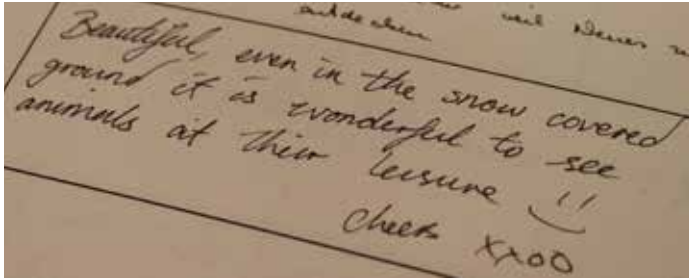 weil Neues
entdecken
Beautiful, even in the snow covered
ground it is wonderful to see
animals at their leisure
Cheers xxoo